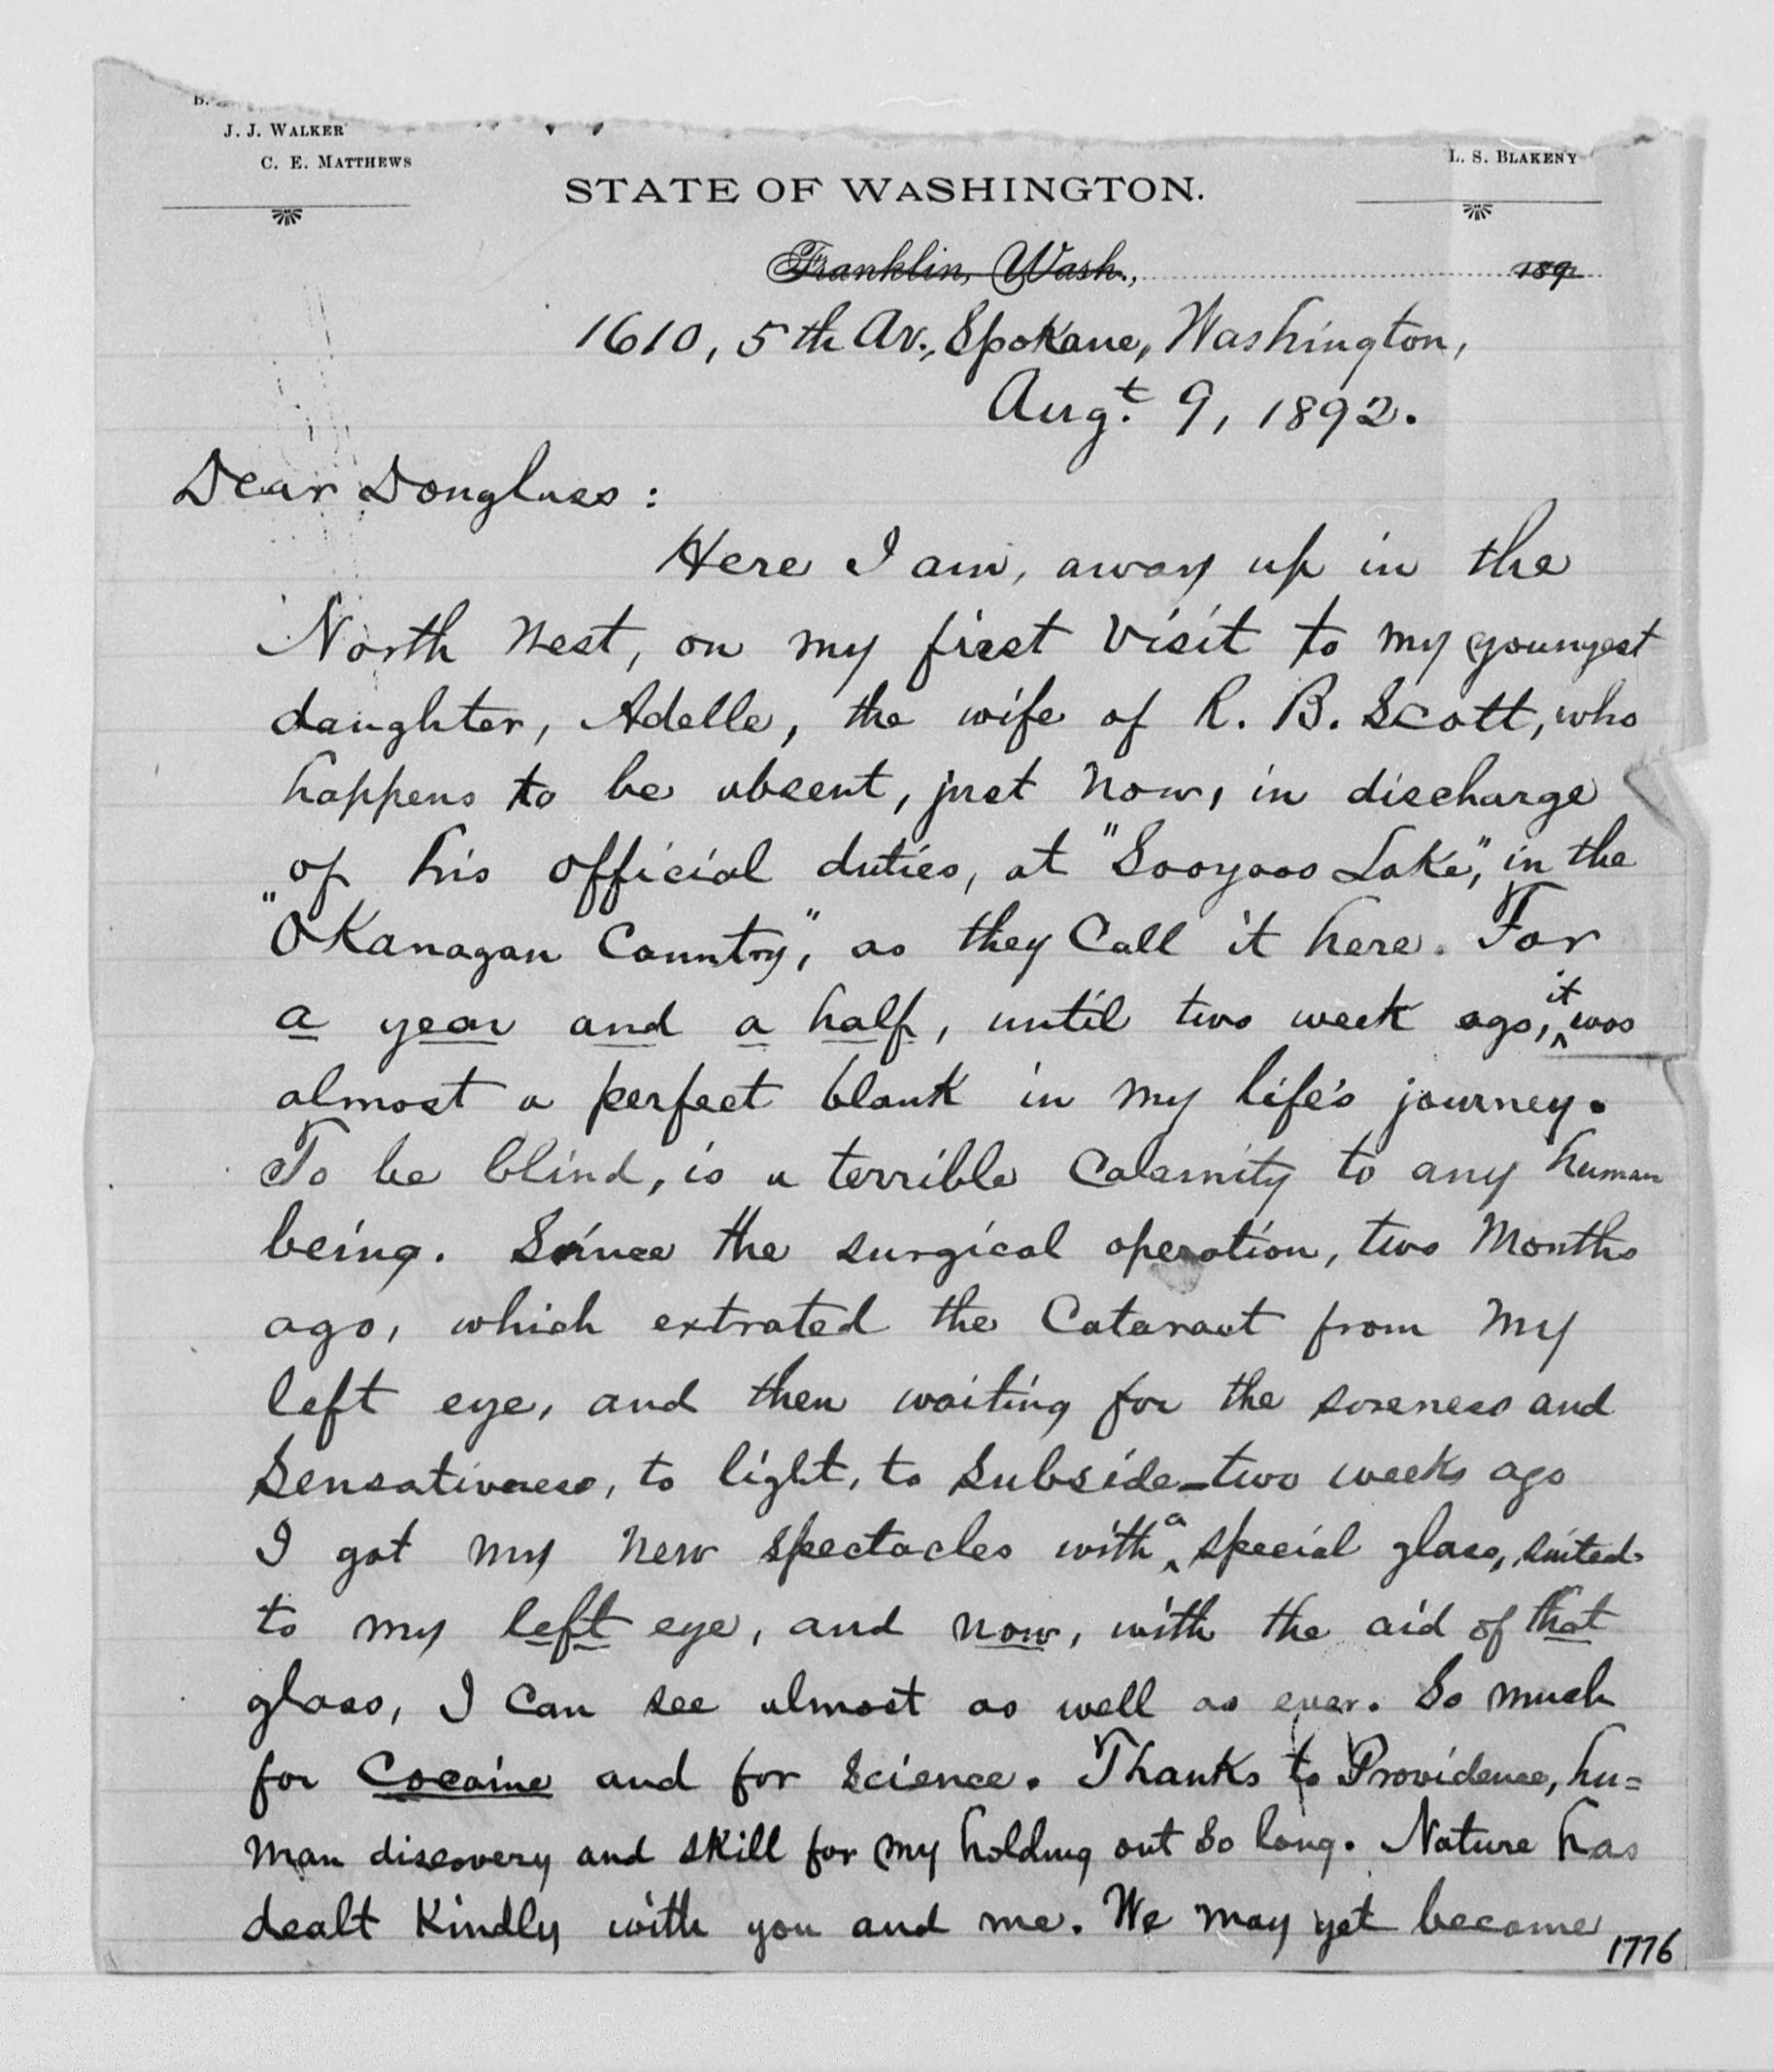 J. J. WALKER
C. E. MATTHEWS
L. S. BLAKENY
STATE OF WASHINGTON.
Franklin, Wash., 189
1610, 5th Av., Spokane, Washington,
Augt. 9, 1892.
Dear Douglass:
Here I am, away up in the
North West, on my first visit to my youngest
daughter, Adelle, the wife of R. B. Scott, who
happens to be absent, just now, in discharge
of his official duties, at "Sooyoos Lake," in the
"OKanagan Country," as they call it here. For
a year and a half, until two week ago, it was
almost a perfect blank in my life's journey.
To be blind, is a terrible calamity to any human
being. Since the surgical operation, two months
ago, which extrated the Cataract from my
left eye, and then waiting for the soreness and
sensativness, to light, to subside – two weeks ago
I got my new spectacles with a special glass, suited
to my left eye, and now, with the aid of that
glass, I can see almost as well as ever. So much
for Cocaine and for science. Thanks to Providence, hu=
man discovery and skill for my holding out so long. Nature has
dealt kindly with you and me. We may yet become
1776